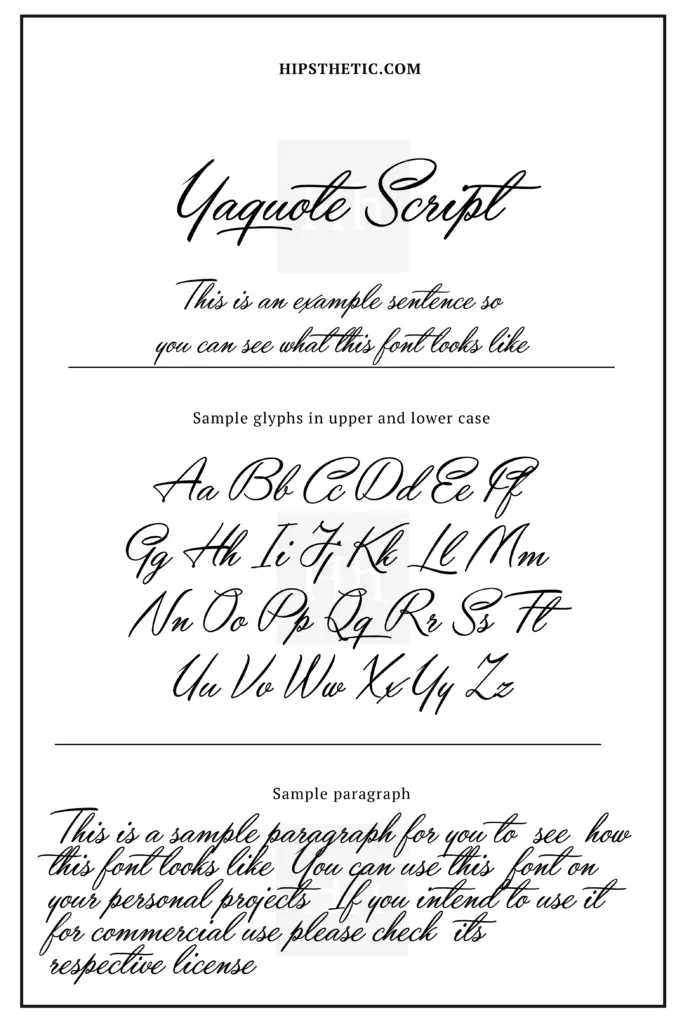 HIPSTHETIC.COM
Yaquote Script
This is an example sentence so
you can see what this font looks like
Sample glyphs in upper and lower case
Aa Bb Cc Dd Ee Ff
Gg Hh Ii Jj Kk Ll Mm
Nn Oo Pp Qq Rr Ss Tt
Uu Vv Ww Xx Yy Zz
Sample paragraph
This is a sample paragraph for you to see how
this font looks like You can use this font on
your personal projects If you intend to use it
for commercial use please check its
respective license